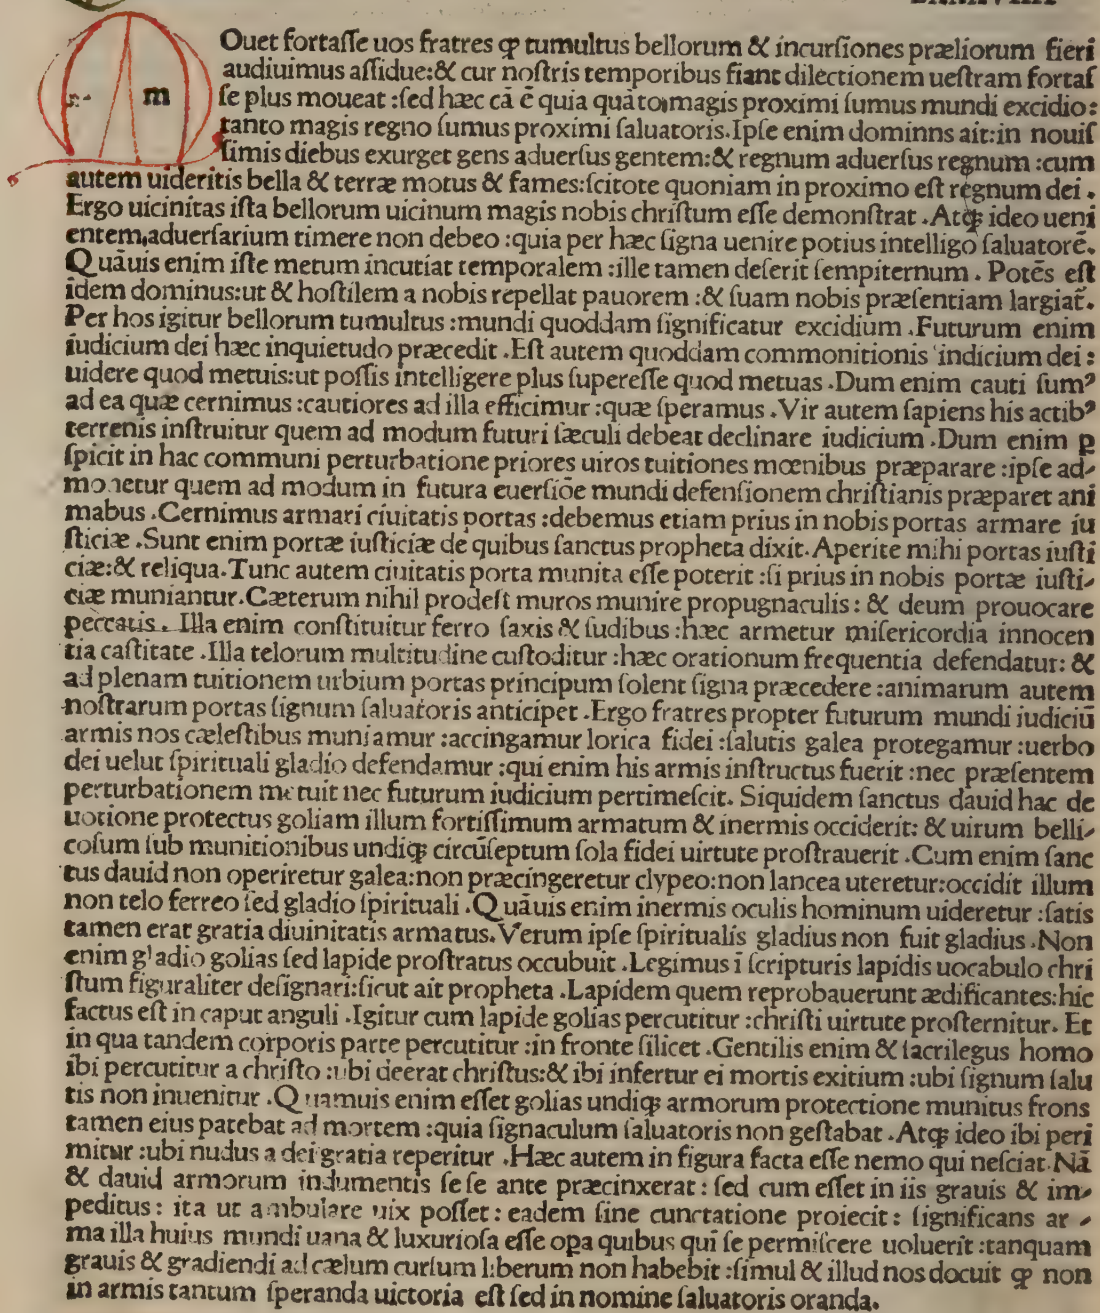 Mouet fortaſſe uos fratres ꝙ tumultus bellorum & incurſiones præliorum fieri
audiuimus aſſidue:& cur noſtris temporibus fiant dilectionem ueſtram fortaſ
ſe plus moueat :ſed hæc cā ē quia quāto magis proximi ſumus mundi excidio:
tanto magis regno ſumus proximi ſaluatoris.Ipſe enim dominns ait:in nouiſ
ſimis diebus exurget gens aduerſus gentem:& regnum aduerſus regnum :cum
autem uideritis bella & terræ motus & fames:ſcitote quoniam in proximo eſt regnum dei .
Ergo uicinitas iſta bellorum uicinum magis nobis chriſtum eſſe demonſtrat .Atqꝫ ideo ueni
entem,aduerſarium timere non debeo :quia per hæc ſigna uenire potius intelligo ſaluatorē.
Quāuis enim iſte metum incutiat temporalem :ille tamen deferit ſempiternum . Potēs eſt
idem dominus:ut & hoſtilem a nobis repellat pauorem :& ſuam nobis præſentiam largiat̄.
Per hos igitur bellorum tumultus :mundi quoddam ſignificatur excidium .Futurum enim
iudicium dei hæc inquietudo præcedit .Eſt autem quoddam commonitionis indicium dei :
uidere quod metuis:ut poſſis intelligere plus ſupereſſe quod metuas .Dum enim cauti ſumꝰ
ad ea quæ cernimus :cautiores ad illa efficimur :quæ ſperamus .Vir autem ſapiens his actibꝰ
terrenis inſtruitur quem ad modum futuri ſæculi debeat declinare iudicium .Dum enim ꝑ
ſpicit in hac communi perturbatione priores uiros tuitiones mœnibus præparare :ipſe ad-
monetur quem ad modum in futura euerſiōe mundi defenſionem chriſtianis præparet ani
mabus .Cernimus armari ciuitatis portas :debemus etiam prius in nobis portas armare iu
ſticiæ .Sunt enim portæ iuſticiæ de quibus ſanctus propheta dixit.Aperite mihi portas iuſti
ciæ:& reliqua.Tunc autem ciuitatis porta munita eſſe poterit :ſi prius in nobis portæ iuſti-
ciæ muniantur.Cæterum nihil prodeſt muros munire propugnaculis: & deum prouocare
peccatis. Illa enim conſtituitur ferro ſaxis & ſudibus :hæc armetur miſericordia innocen
tia caſtitate .Illa telorum multitudine cuſtoditur :hæc orationum frequentia defendatur: &
ad plenam tuitionem urbium portas principum ſolent ſigna præcedere :animarum autem
noſtrarum portas ſignum ſaluatoris anticipet .Ergo fratres propter futurum mundi iudiciū
armis nos cæleſtibus muniamur :accingamur lorica fidei :ſalutis galea protegamur :uerbo
dei uelut ſpirituali gladio defendamur :qui enim his armis inſtructus fuerit :nec præſentem
perturbationem metuit nec futurum iudicium pertimeſcit. Siquidem ſanctus dauid hac de
uotione protectus goliam illum fortiſſimum armatum & inermis occiderit: & uirum belli-
coſum ſub munitionibus undiqꝫ circūſeptum ſola fidei uirtute proſtrauerit .Cum enim ſanc
tus dauid non operiretur galea:non præcingeretur clypeo:non lancea uteretur:occidit illum
non telo ferreo ſed gladio ſpirituali .Quāuis enim inermis oculis hominum uideretur :ſatis
tamen erat gratia diuinitatis armatus.Verum ipſe ſpiritualis gladius non fuit gladius .Non
enim gladio golias ſed lapide proſtratus occubuit .Legimus ī ſcripturis lapidis uocabulo chri
ſtum figuraliter deſignari:ſicut ait propheta .Lapidem quem reprobauerunt ædificantes:hic
factus eſt in caput anguli .Igitur cum lapide golias percutitur :chriſti uirtute proſternitur. Et
in qua tandem corporis parte percutitur :in fronte ſilicet .Gentilis enim & ſacrilegus homo
ibi percutitur a chriſto :ubi deerat chriſtus:& ibi infertur ei mortis exitium :ubi ſignum ſalu
tis non inuenitur .Quamuis enim eſſet golias undiqꝫ armorum protectione munitus frons
tamen eius patebat ad mortem :quia ſignaculum ſaluatoris non geſtabat .Atqꝫ ideo ibi peri
mitur :ubi nudus a dei gratia reperitur .Hæc autem in figura facta eſſe nemo qui neſciat.Nā
& dauid armorum indumentis ſe ſe ante præcinxerat: ſed cum eſſet in iis grauis & im-
peditus: ita ut ambulare uix poſſet: eadem ſine cunctatione proiecit: ſignificans ar -
ma illa huius mundi uana & luxurioſa eſſe opa quibus qui ſe permiſcere uoluerit :tanquam
grauis & gradiendi ad cælum curſum liberum non habebit :ſimul & illud nos docuit ꝙ non
in armis tantum ſperanda uictoria eſt ſed in nomine ſaluatoris oranda.